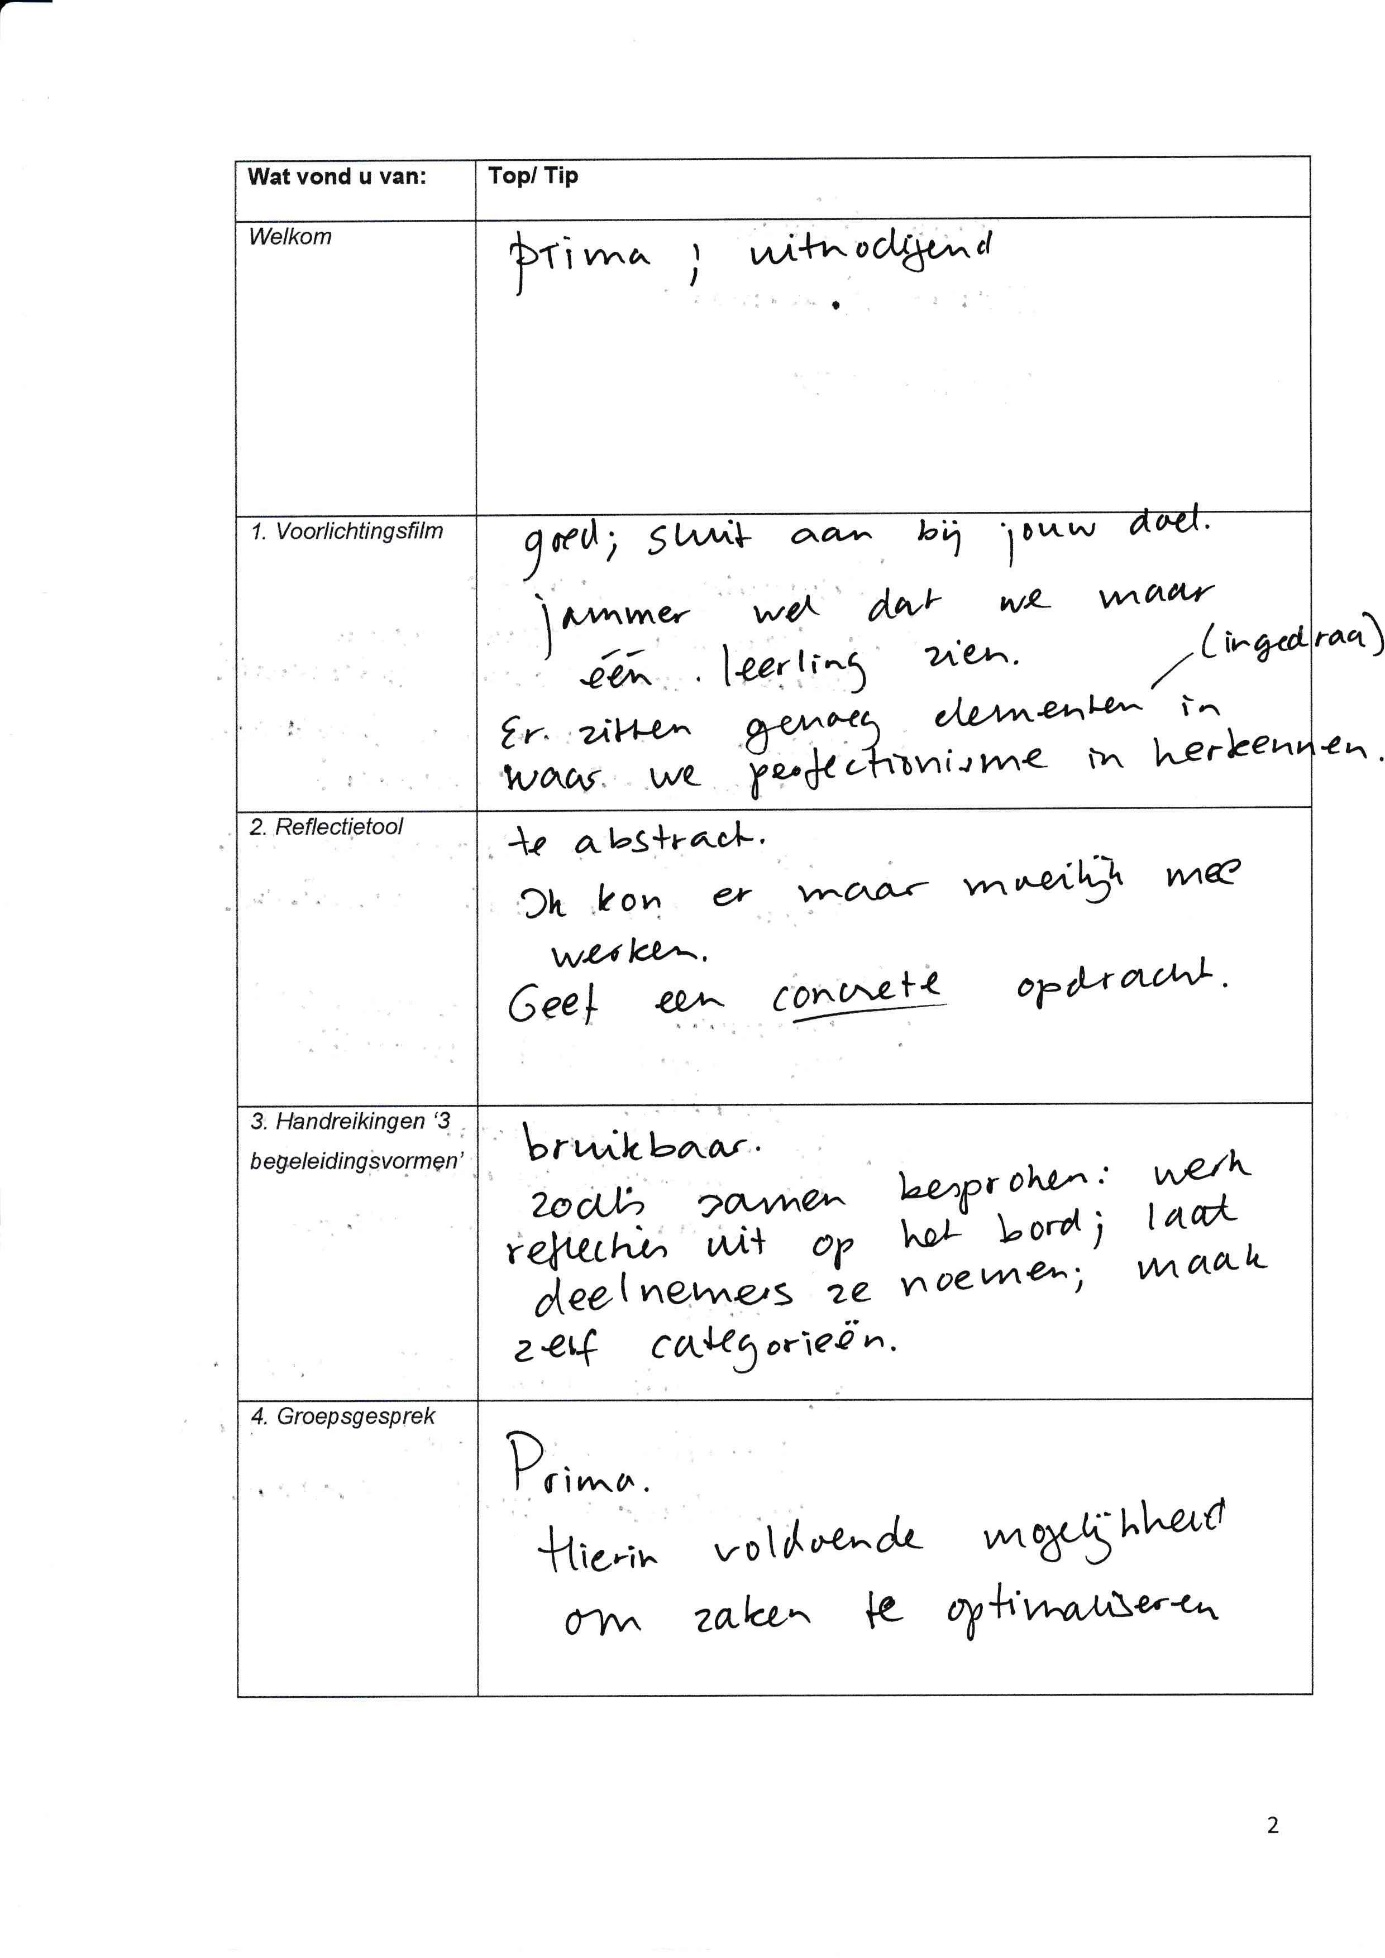 Wat vond u van: Top/ Tip
Welkom
prima ; uitnodigend
1. Voorlichtingsfilm
goed; sluit aan bij jouw doel.
jammer wel dat we maar
één leerling zien.
(ingedraa)
Er zitten genoeg elementen in
waar we perfectionisme in herkennen.
2. Reflectietool
te abstract.
Ik kon er maar moeilijk mee
werken.
Geef een concrete opdracht.
3. Handreikingen ‘3
begeleidingsvormen’
bruikbaar.
zoals samen besproken: werk
reflecties uit op het bord; laat
deelnemers ze noemen; maak
zelf categorieën.
4. Groepsgesprek
Prima.
Hierin voldoende mogelijkheid
om zaken te optimaliseren
2